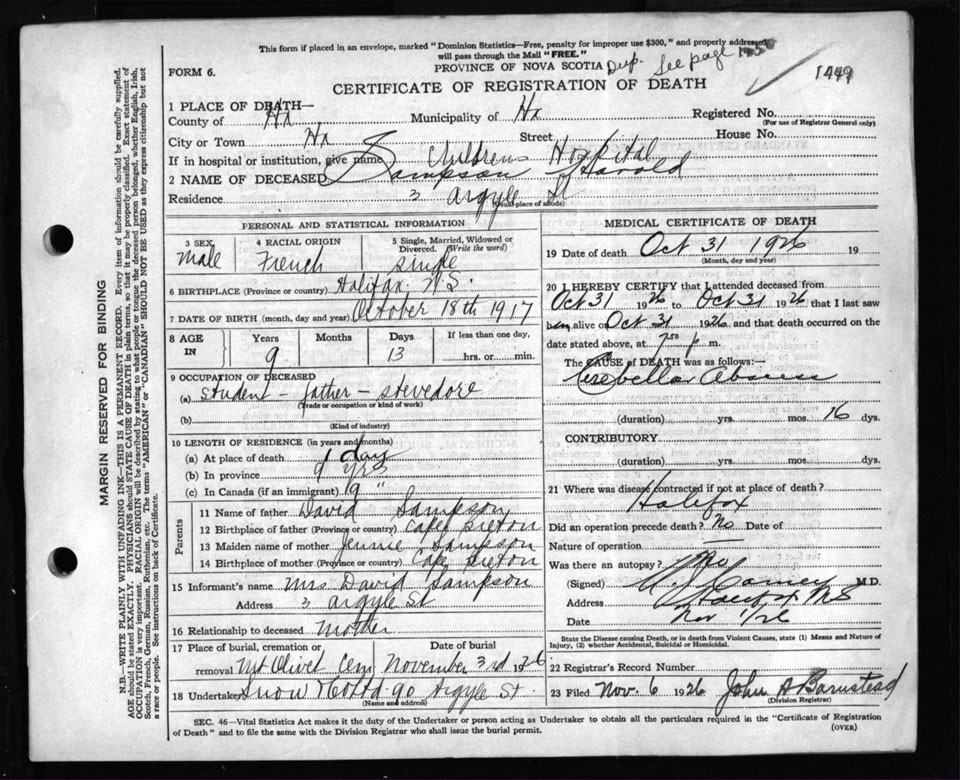 This form if placed in an envelope, marked "Dominion Statistics—Free, penalty for improper use $300," and properly addressed
will pass through the Mail "FREE."
PROVINCE OF NOVA SCOTIA Dup. See page
FORM 6.
1449
CERTIFICATE OF REGISTRATION OF DEATH
1 PLACE OF DEATH—
County of Hx Municipality of Hx Registered No.
(For use of Registrar General only)
City or Town Hx Street House No.
If in hospital or institution, give name Childrens Hospital
2 NAME OF DECEASED Sampson Harold
Residence 3 Argyle St
(Usual place of abode)
PERSONAL AND STATISTICAL INFORMATION
3 SEX 4 RACIAL ORIGIN 5 Single, Married, Widowed or
Divorced. (Write the word)
Male French single
6 BIRTHPLACE (Province or country) Halifax N.S.
7 DATE OF BIRTH (month, day and year) October 18th 1917
8 AGE IN Years Months Days If less than one day,
9 13 hrs. or min.
9 OCCUPATION OF DECEASED
(a) student - father - stevedore
(Trade or occupation or kind of work)
(b)
(Kind of industry)
10 LENGTH OF RESIDENCE (in years and months)
(a) At place of death 1 day
(b) In province 9 yrs
(c) In Canada (if an immigrant) 9 "
Parents
11 Name of father David Sampson
12 Birthplace of father (Province or country) Cape Breton
13 Maiden name of mother Jennie Sampson
14 Birthplace of mother (Province or country) Cape Breton
15 Informant's name Mrs David Sampson
Address 3 Argyle St
16 Relationship to deceased Mother
17 Place of burial, cremation or Date of burial
removal Mt Olivet Cem November 3rd 1926
18 Undertaker Snow & Co Ltd 90 Argyle St.
(Name and address)
MEDICAL CERTIFICATE OF DEATH
19 Date of death Oct 31 1926 19
(Month, day and year)
20 I HEREBY CERTIFY that I attended deceased from
Oct 31 1926 to Oct 31 1926 that I last saw
him alive on Oct 31 1926 and that death occurred on
date stated above, at 7 50 p m.
The CAUSE of DEATH was as follows:
Cerebellar Abscess
(duration) yrs. mos. 16 dys.
CONTRIBUTORY
(duration) yrs. mos. dys.
21 Where was disease contracted if not at place of death?
Halifax
Did an operation precede death? No Date of
Nature of operation —
Was there an autopsy? No
(Signed) M.D.
Address Halifax NS
Date Nov 1/26
State the Disease causing Death, or in death from Violent Causes, state (1) Means and Nature of
Injury, (2) whether Accidental, Suicidal or Homicidal.
22 Registrar's Record Number
23 Filed Nov. 6 1926 John A Barnstead
(Division Registrar)
SEC. 46—Vital Statistics Act makes it the duty of the Undertaker or person acting as Undertaker to obtain all the particulars required in the "Certificate of Registration
of Death" and to file the same with the Division Registrar who shall issue the burial permit.
(OVER)
MARGIN RESERVED FOR BINDING
N.B.—WRITE PLAINLY WITH UNFADING INK—THIS IS A PERMANENT RECORD. Every item of information should be carefully supplied.
AGE should be stated EXACTLY. PHYSICIANS should STATE CAUSE OF DEATH in plain terms, so that it may be properly classified. Exact statement of
OCCUPATION is very important. RACIAL ORIGIN will be described by stating to what people or tongue the deceased person belonged, whether English, Irish,
Scotch, French, German, Russian, Ruthenian, etc. The terms "AMERICAN" or "CANADIAN" SHOULD NOT BE USED as they express citizenship but not
a race or people. See instructions on back of Certificate.